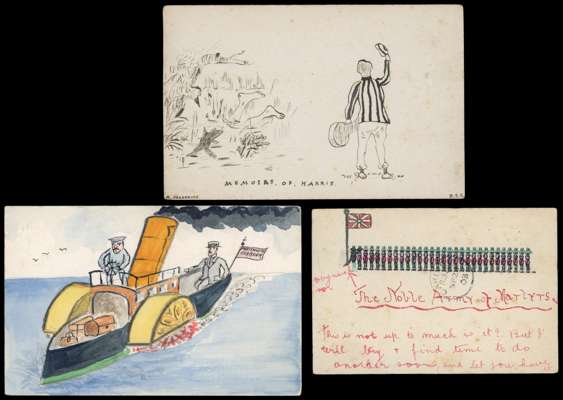 MEMOIRS. OF. HARRIS.
The Noble Army of Martyrs.
this is not up to much is it? But I
will try & find time to do
another soon and let you have